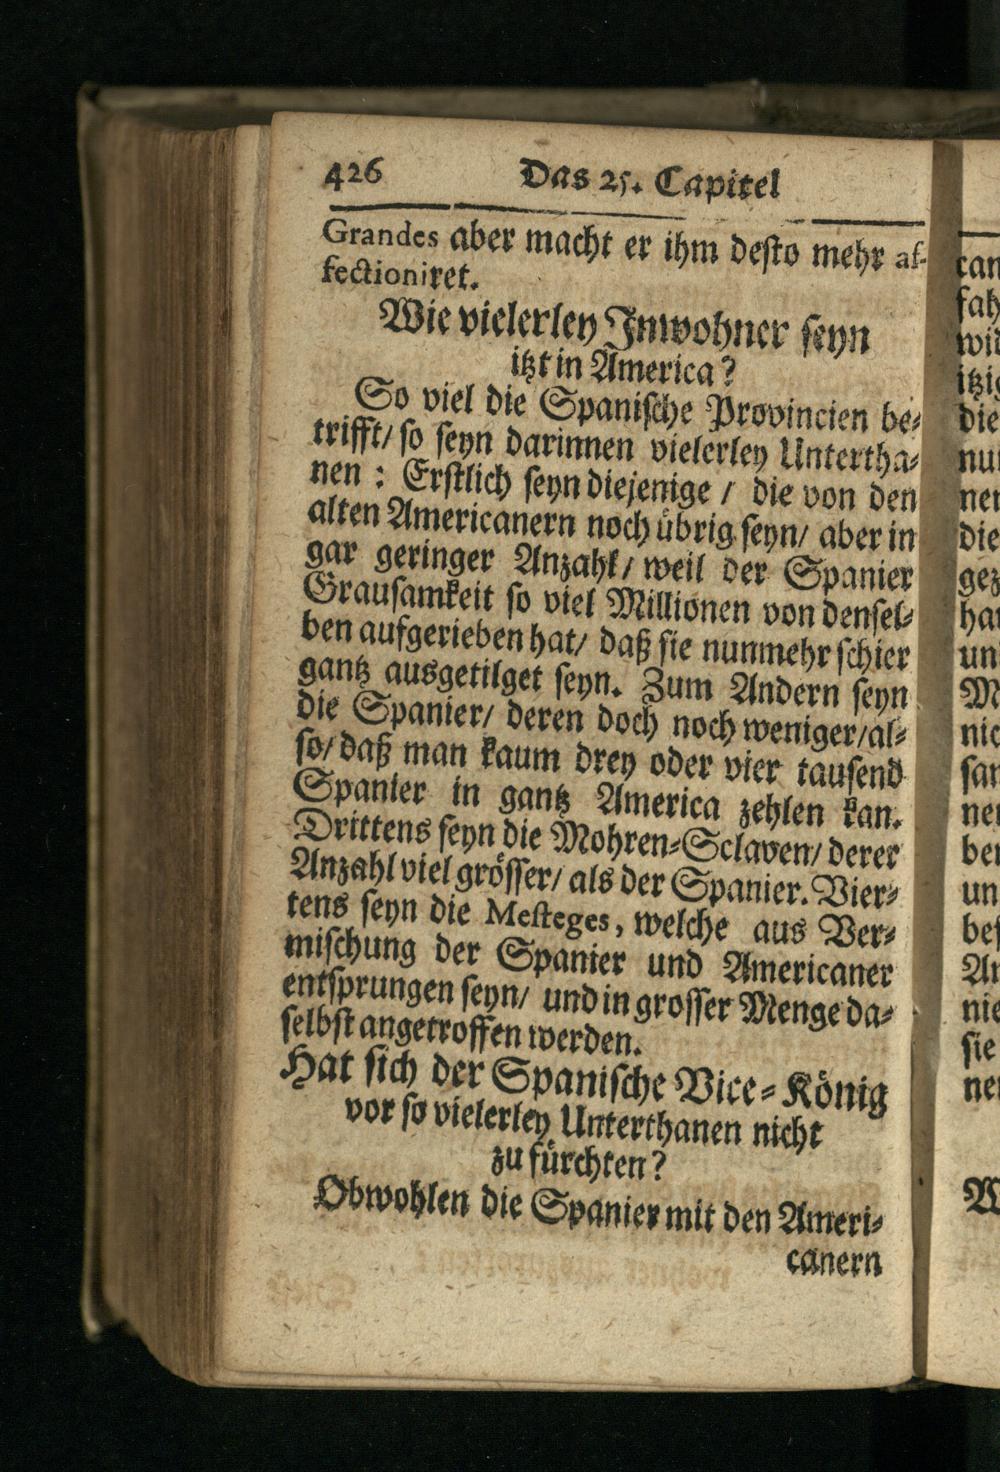 426 Das 25. Capitel
Grandes aber macht er ihm desto mehr af-
fectioniret.
Wie vielerley Inwohner seyn
itzt in America?
So viel die Spanische Provincien be-
trifft/ so seyn darinnen vielerley Untertha-
nen : Erstlich seyn diejenige / die von den
alten Americanern noch übrig seyn/ aber in
gar geringer Anzahl/ weil der Spanier
Grausamkeit so viel Millionen von densel-
ben aufgerieben hat/ daß sie nunmehr schier
gantz ausgetilget seyn. Zum Andern seyn
die Spanier/ deren doch noch weniger/al-
so/ daß man kaum drey oder vier tausend
Spanier in gantz America zehlen kan.
Drittens seyn die Mohren-Sclaven/ derer
Anzahl viel grösser/ als der Spanier. Vier-
tens seyn die Mesteges, welche aus Ver-
mischung der Spanier und Americaner
entsprungen seyn/ und in grosser Menge da-
selbst angetroffen werden.
Hat sich der Spanische Vice-König
vor so vielerley Unterthanen nicht
zu fürchten?
Obwohlen die Spanier mit den Ameri-
canern